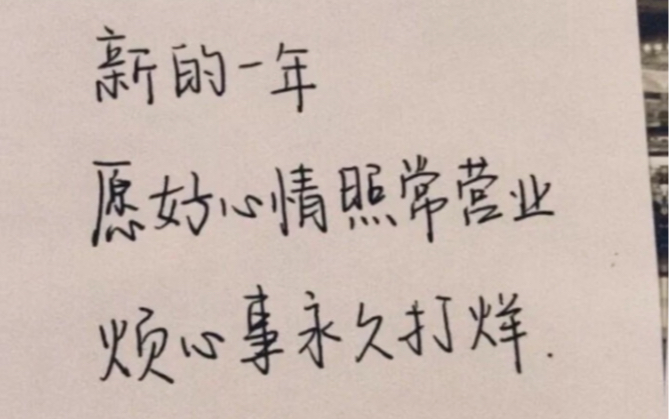 新的一年
愿好心情照常营业
烦心事永久打烊.